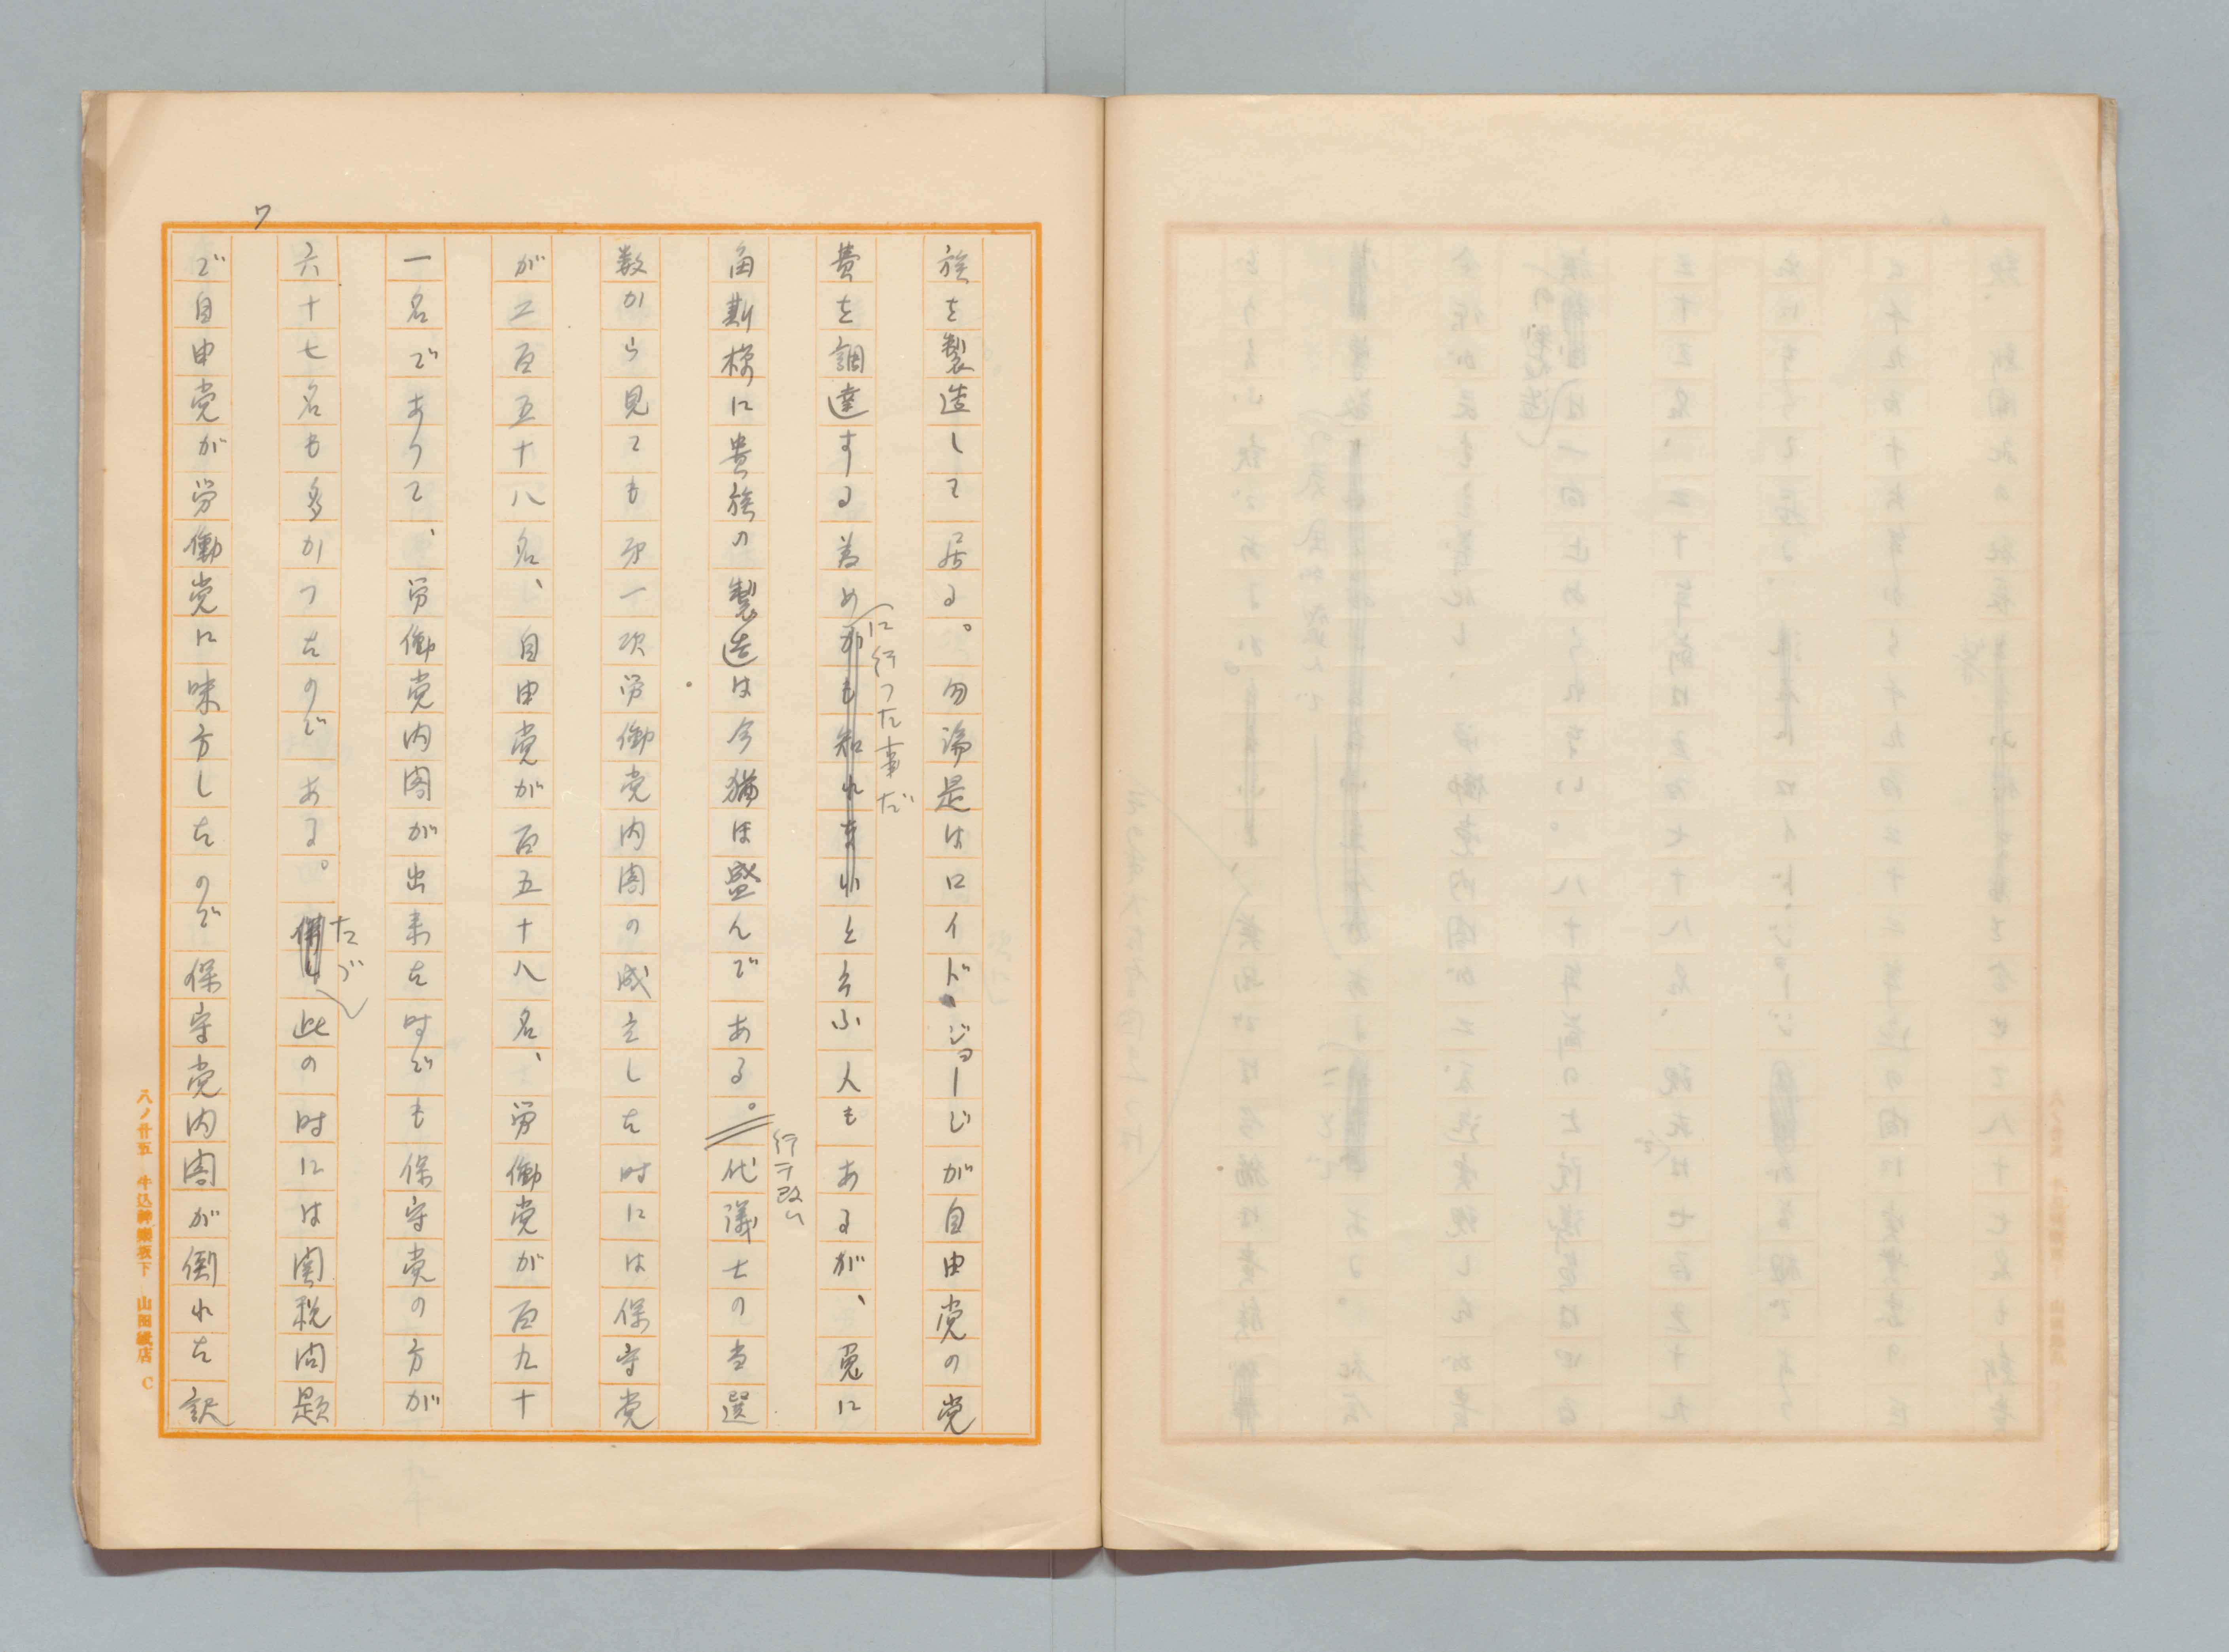 7
族を製造して居る。勿論是はロイド・ジョージが自由党の党
に行つた事だ
費を調達する為めかも知れないと云ふ人もあるが、兎に
行ヲ改ム
角斯様に貴族の製造は今猶ほ盛んである。代議士の当選
数から見ても第一次労働党内閣の成立した時には保守党
が二百五十八名、自由党が百五十八名、労働党が百九十
一名であつて、労働党内閣が出来た時でも保守党の方が
たゞ
六十七名も多かつたのである。併し此の時には関税問題
で自由党が労働党に味方したので保守党内閣が倒れた訳
八ノ廿五 牛込神樂坂下 山田紙店 C